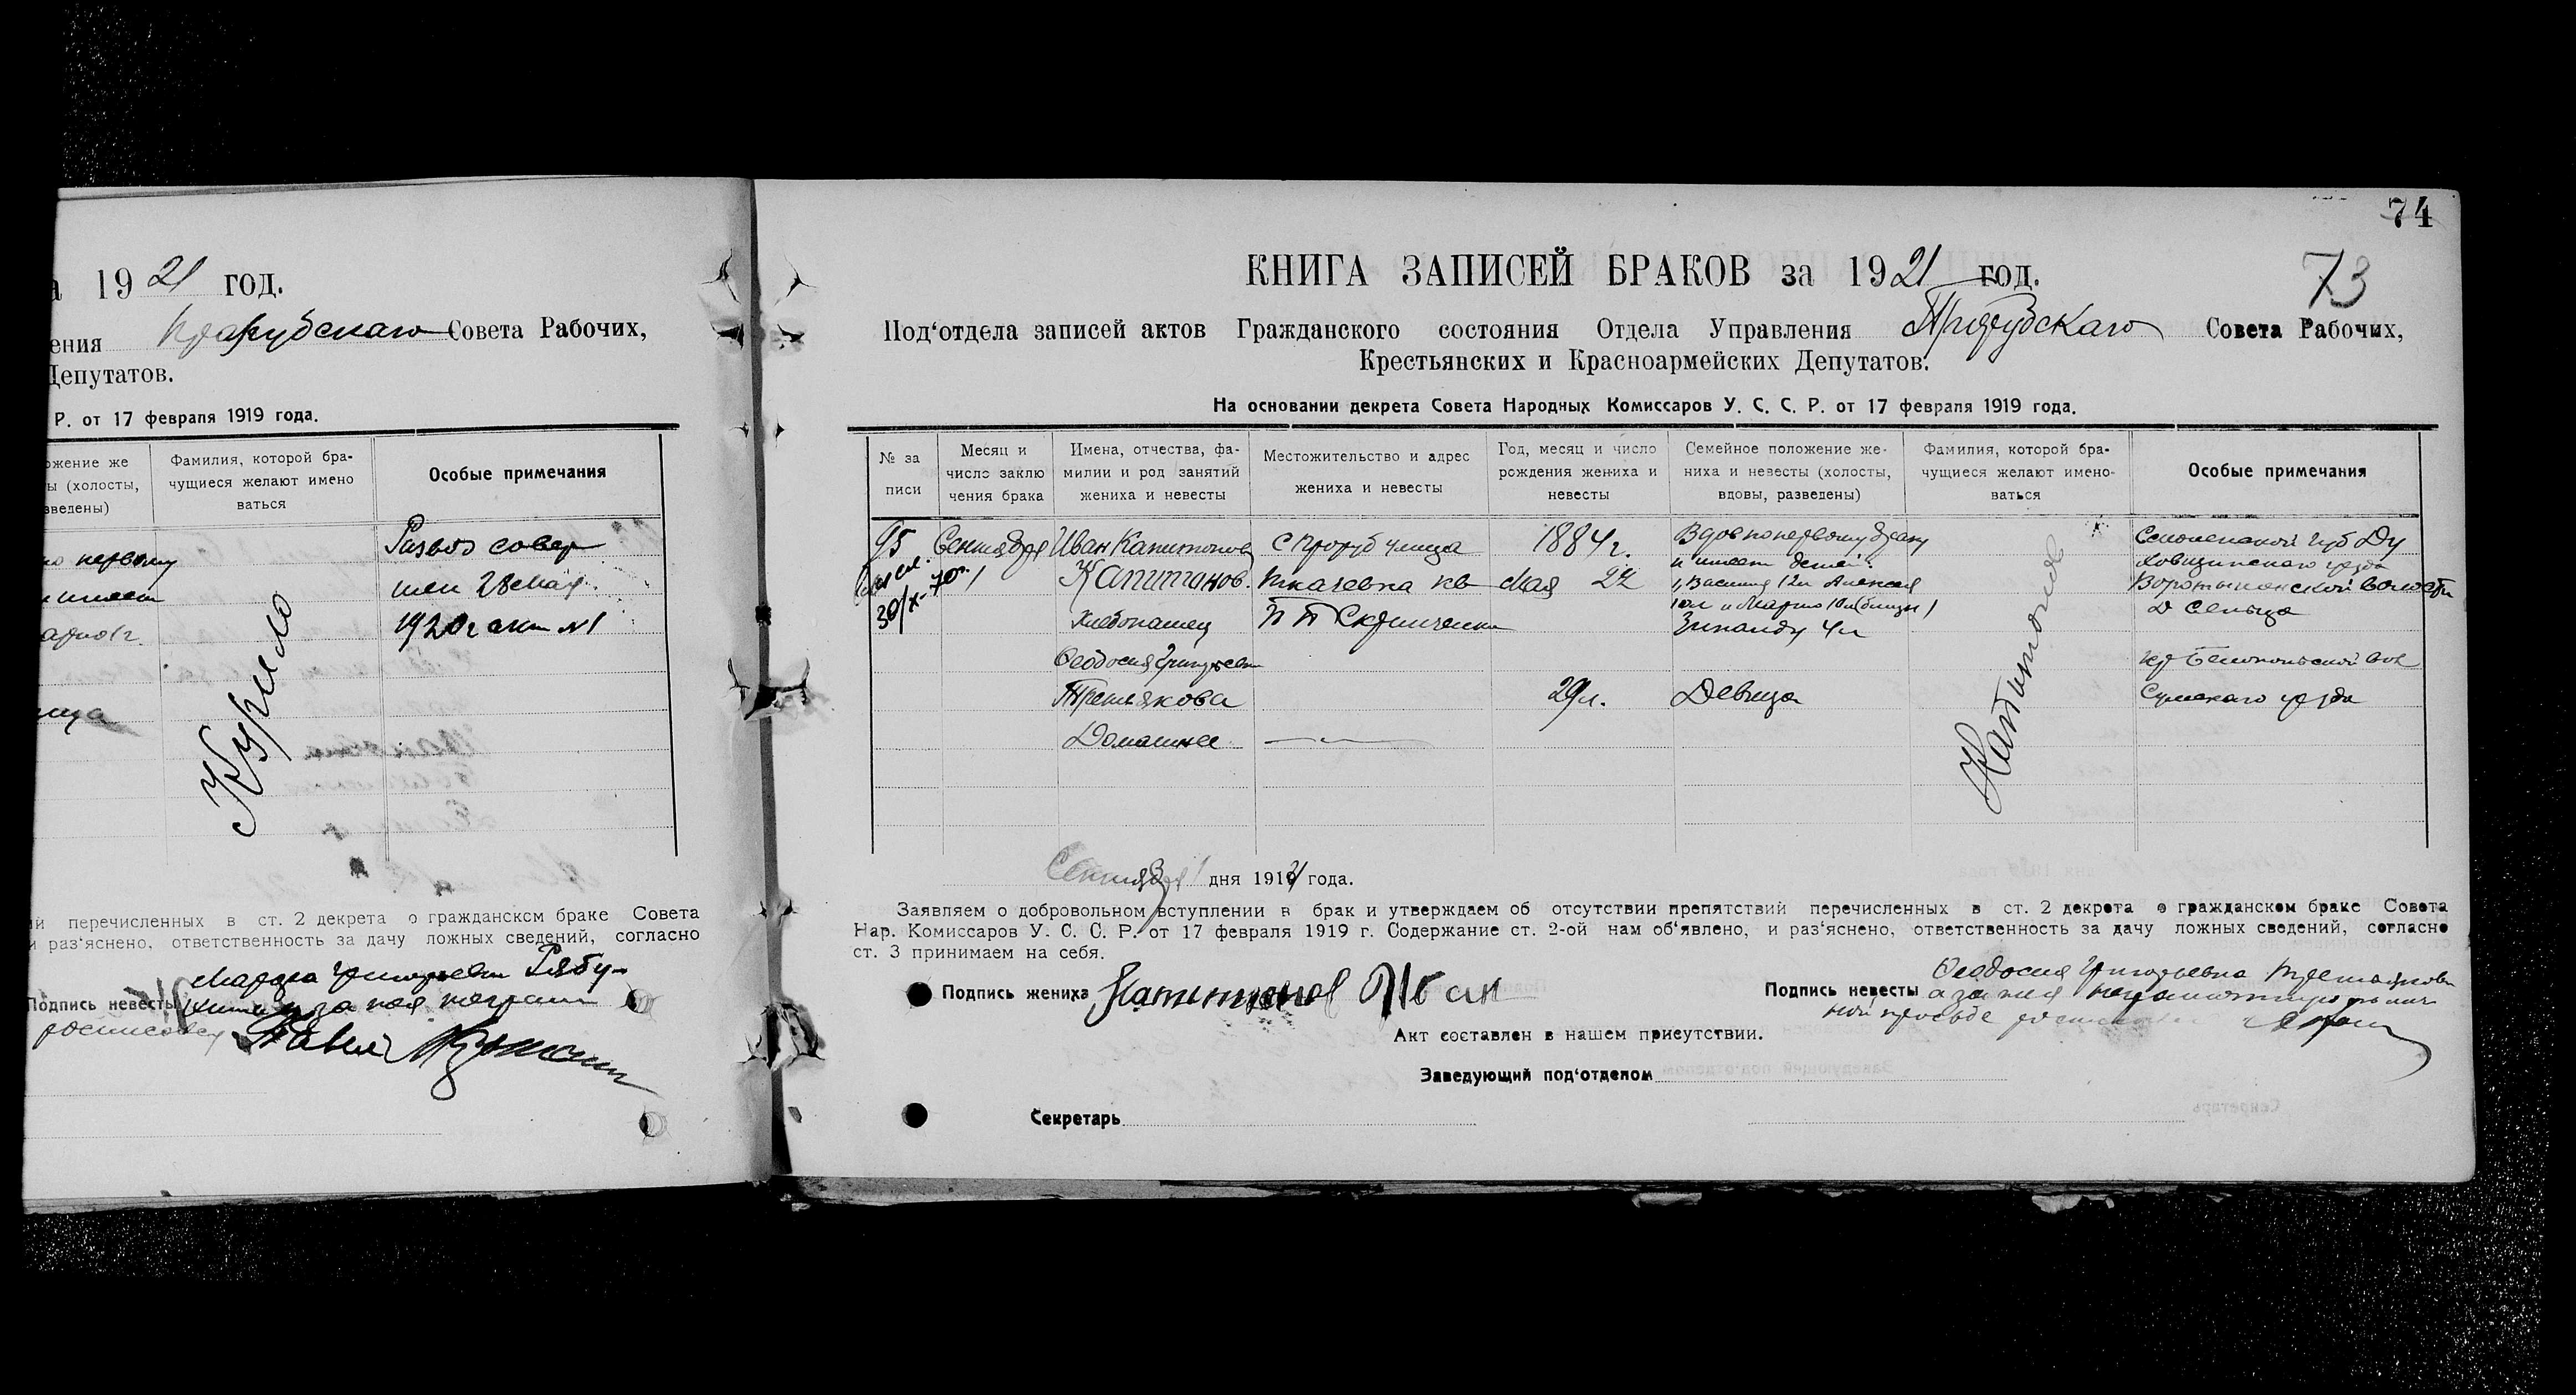 19 21 год.
Совета Рабочих,
ения
Депутатов.
Р. от 17 февраля 1919 года.
ожение же
ы (холосты,
зведены)
Фамилия, которой бра-
чущиеся желают имено
ваться
Особые примечания
по первому
имеет
Курило
Развод совер
шен 28 мая
1920 г акт №1
ий перечисленных в ст. 2 декрета о гражданском браке Совета
и раз‘яснено, ответственность за дачу ложных сведений, согласно
Подпись невесты
Марфа Григорьевна
за нея неграм
Павел
74
73
КНИГА ЗАПИСЕЙ БРАКОВ за 1921 год.
Под‘отдела записей актов Гражданского состояния Отдела Управления Совета Рабочих,
Крестьянских и Красноармейских Депутатов.
На основании декрета Совета Народных Комиссаров У. С. С. Р. от 17 февраля 1919 года.
№ за
писи
Месяц и
число заклю
чения брака
Имена, отчества, фа-
милии и род занятий
жениха и невесты
Местожительство и адрес
жениха и невесты
Год, месяц и число
рождения жениха и
невесты
Семейное положение же-
ниха и невесты (холосты,
вдовы, разведены)
Фамилия, которой бра-
чущиеся желают имено-
ваться
Особые примечания
95
30/X-70г.
Сентября
1
Иван Капитонов
Капитонов.
Хлебопашец
улица
Ткачевка кв
1884 г.
мая 22
Вдов по первому браку
и имеет детей:
1, Василия 12 л Алексея
10 л и Марию 10 л (близны)
Зинаиду 4 л
Капитонов
Смоленской губ Ду
ховщинского уезда
Воротышенской волости
д Сельцо
Феодосия Григорьевн
Третьякова
Домашнее
29 л.
Девица
Белопольской вол
Сумскаго уезда
Сентября 1 дня 1921 года.
Заявляем о добровольном вступлении в брак и утверждаем об отсутствии препятствий перечисленных в ст. 2 декрета о гражданском браке Совета
Нар. Комиссаров У. С. С. Р. от 17 февраля 1919 г. Содержание ст. 2-ой нам об‘явлено, и раз‘яснено, ответственность за дачу ложных сведений, согласно
ст. 3 принимаем на себя.
Подпись жениха Капитонов Иван
Подпись невесты Феодосия Григорьевна Третьякова
а за нея неграмотную по лич
ной просьбе
Акт составлен в нашем присутствии.
Заведующий под‘отделом
Секретарь